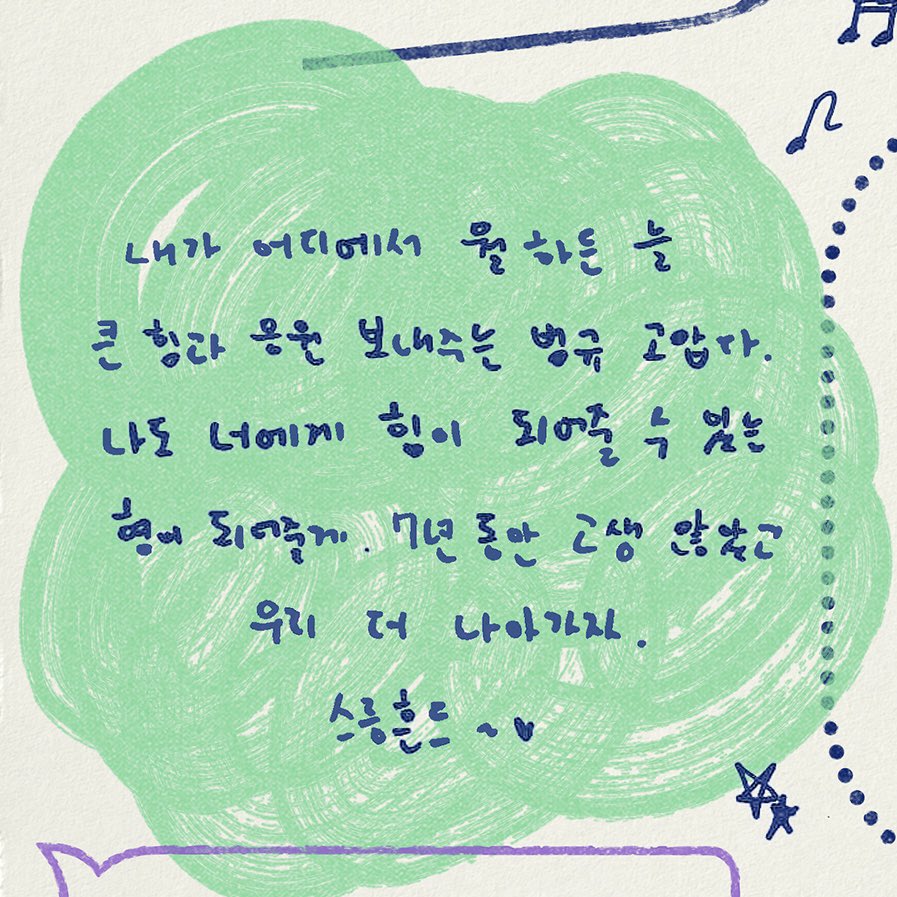 내가 어디에서 뭘 하든 늘
큰 힘과 응원 보내주는 범규 고맙다.
나도 너에게 힘이 되어줄 수 있는
형이 되어줄게. 7년 동안 고생 많았고
우리 더 나아가자.
스릉흔드 ~♥